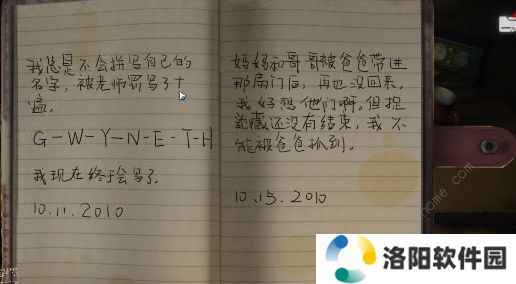 我总是不会拼写自己的
名字，被老师罚写了十
遍。
G-W-Y-N-E-T-H
我现在终于会写了。
10.11.2010
妈妈和哥哥被爸爸带进
那扇门后，再也没回来，
我好想他们啊。但捉
迷藏还没有结束，我不
能被爸爸抓到。
10.15.2010
洛阳软件园